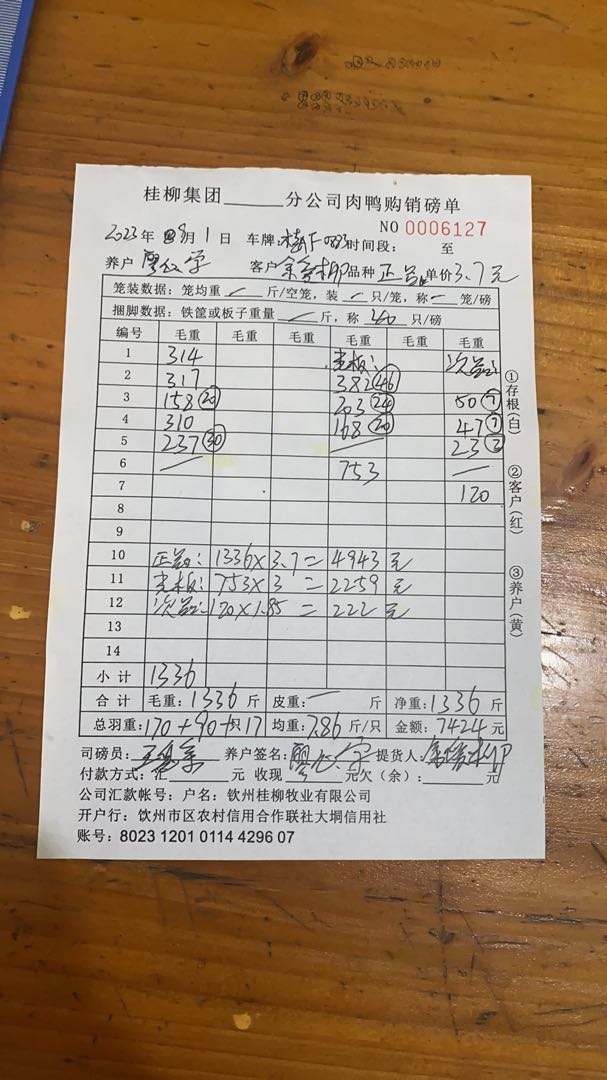 桂柳集团______分公司肉鸭购销磅单
NO 0006127
2023年 9月1日 车牌: 时间段: 至
养户 廖 学 客户 余 品种 正品 单价3.7元
笼装数据:笼均重 / 斤/空笼,装 / 只/笼,称 / 笼/磅
捆脚数据:铁筐或板子重量 / 斤,称 40 只/磅
编号 毛重 毛重 毛重 毛重 毛重 毛重
1 314 光板: 次品:
2 317 382 (46)
3 158 (20) 203 (24) 50 (7)
4 310 168 (20) 47 (7)
5 237 (30) / 23 (3)
6 / 753 /
7 120
8
9
10 正品: 1336×3.7=4943元
11 光板: 753×3=2259元
12 次品: 120×1.85=222元
13
14
小计 1336
合计 毛重:1336斤 皮重:/ 斤 净重:1336斤
总羽重:170+90+ 17 均重:7.86斤/只 金额:7424元
司磅员: 养户签名:廖 学 提货人:
付款方式:汇______元 收现______元欠(余):______元
公司汇款帐号:户名:钦州桂柳牧业有限公司
开户行:钦州市区农村信用合作联社大垌信用社
账号:8023 1201 0114 4296 07
①存根(白)
②客户(红)
③养户(黄)